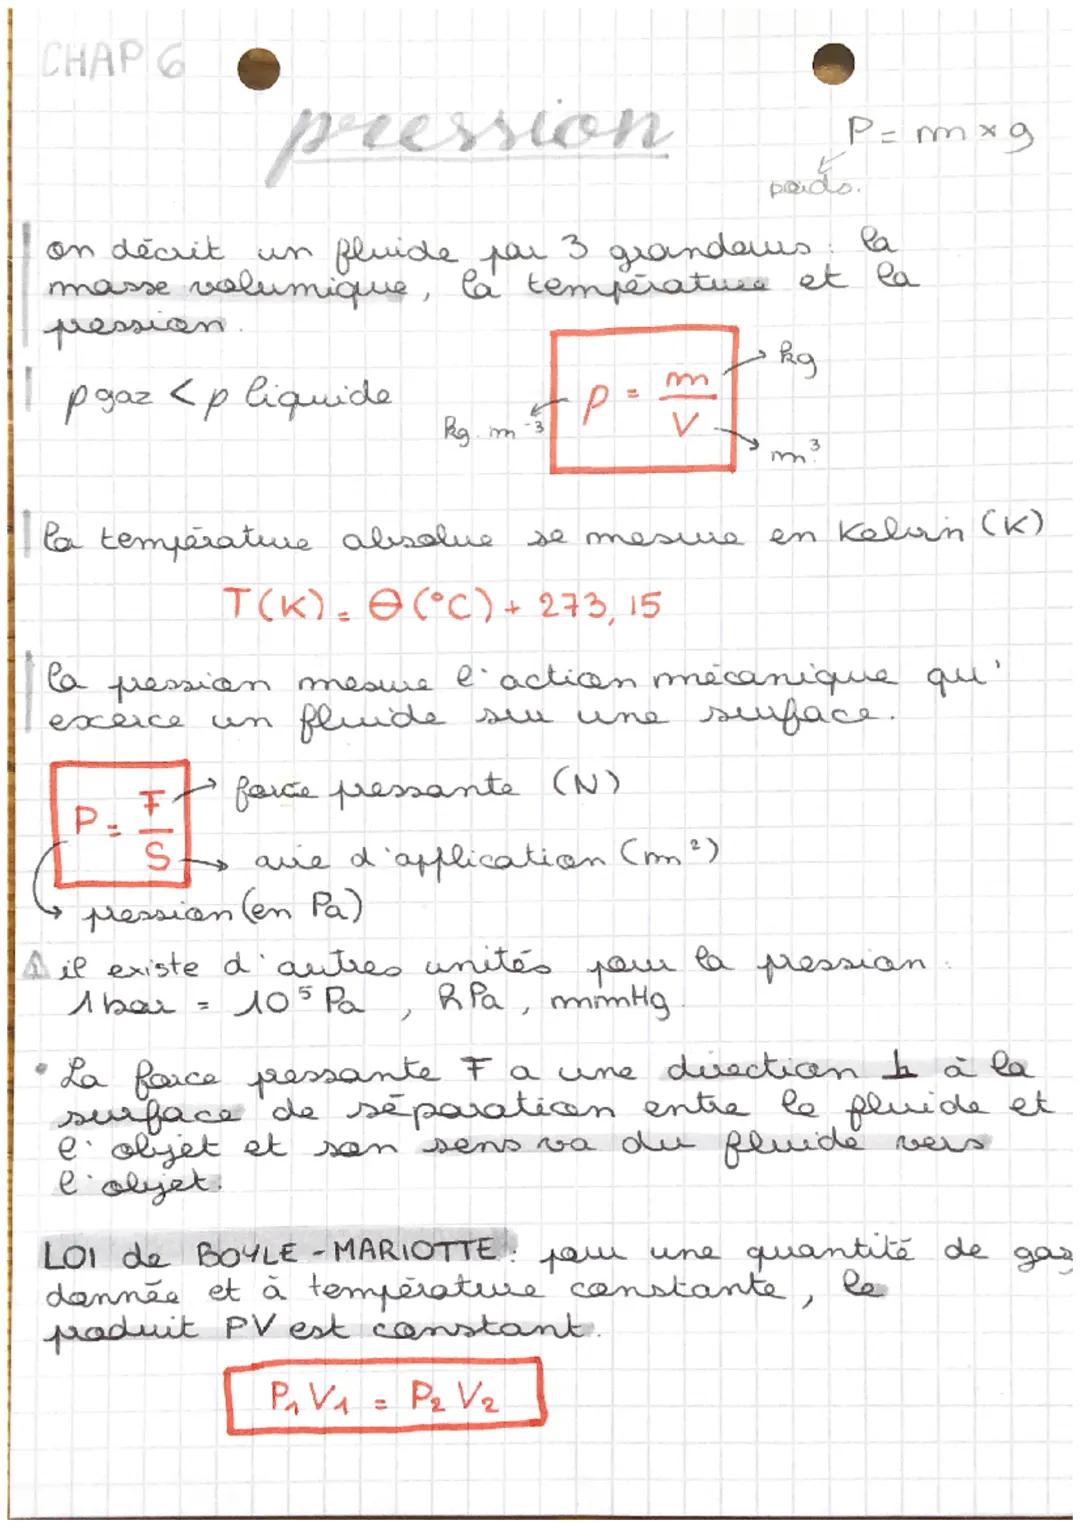 CHAP 6
pression
P = m × g
poids.
on décrit un fluide par 3 grandeurs : la
masse volumique, la température et la
pression.
ρ gaz < ρ liquide
kg. m⁻³
ρ = m / V
kg
m³
la température absolue se mesure en Kelvin (K)
T(K) = θ (°C) + 273, 15
la pression mesure l'action mécanique qu'
exerce un fluide sur une surface.
P = F / S
force pressante (N)
aire d'application (m²)
pression (en Pa)
⚠ il existe d'autres unités pour la pression :
1 bar = 10⁵ Pa , hPa , mmHg.
• La force pressante F a une direction ⊥ à la
surface de séparation entre le fluide et
l'objet et son sens va du fluide vers
l'objet.
LOI de BOYLE - MARIOTTE : pour une quantité de gaz
donnée et à température constante, le
produit PV est constant.
P₁ V₁ = P₂ V₂